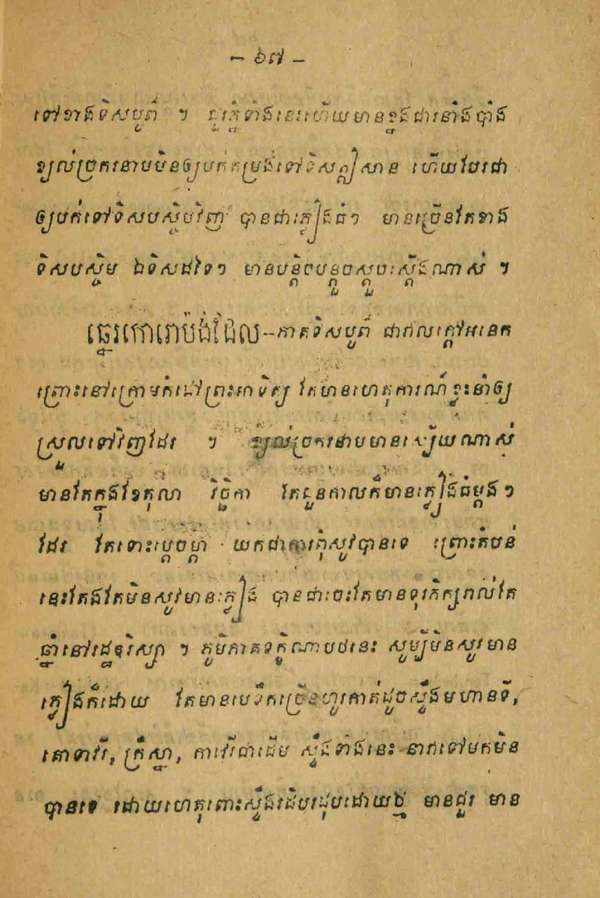 – ៦៧ –
ទៅខាងទិសបូព៌ ។ ជួរភ្នំទាំងនេះហើយមានខ្នងជារនាំងបាំង
ខ្យល់ច្រករនាបមិនឲ្យបក់តម្រង់ទៅទិសឦសាន ហើយបែរជា
ឲ្យបក់ទៅទិសបស្ចិមវិញ បានជាភ្លៀងធំៗ មានច្រើនតែខាង
ទិសបស្ចិម ឯទិសដទៃៗ មានបន្តិចបន្តួចស្តួចស្តើងណាស់ ។
ឆ្នេរកោរោប៉ង់ដែល--ភាគទិសបូព៌ ជាកលក្តៅអនេក
ព្រោះនៅក្រោមកំដៅព្រះអាទិត្យ តែមានហេតុការណ៍ខ្លះនាំឲ្យ
ស្រួលទៅវិញដែរ ។ ខ្យល់ច្រករនាបមានស្បើយណាស់
មានតែក្នុងខែតុលា វិច្ឆិកា តែជួនកាលក៏មានភ្លៀងធំម្តងៗ
ដែរ តែទោះប្តេចម្តាំ យកជាការពុំសូវបានទេ ព្រោះតំបន់
នេះតែងតែមិនសូវមានភ្លៀង បានជាចេះតែមានទុរភិក្សរាល់តែ
ឆ្នាំនៅរដ្ឋឧរិស្សា ។ ភូមិភាគទក្ខិណាបថនេះ សូម្បីមិនសូវមាន
ភ្លៀងក៏ដោយ តែមានមេទឹកច្រើនហូរកាត់ដូចស្ទឹងមហានទី,
គោទាវរី, ក្រឹស្នា, កាវេរីជាដើម ស្ទឹងទាំងនេះ នាវាទៅមកមិន
បានទេ ដោយហេតុពោះស្ទឹងរដិបរដុបដោយថ្ម មានជួរ មាន